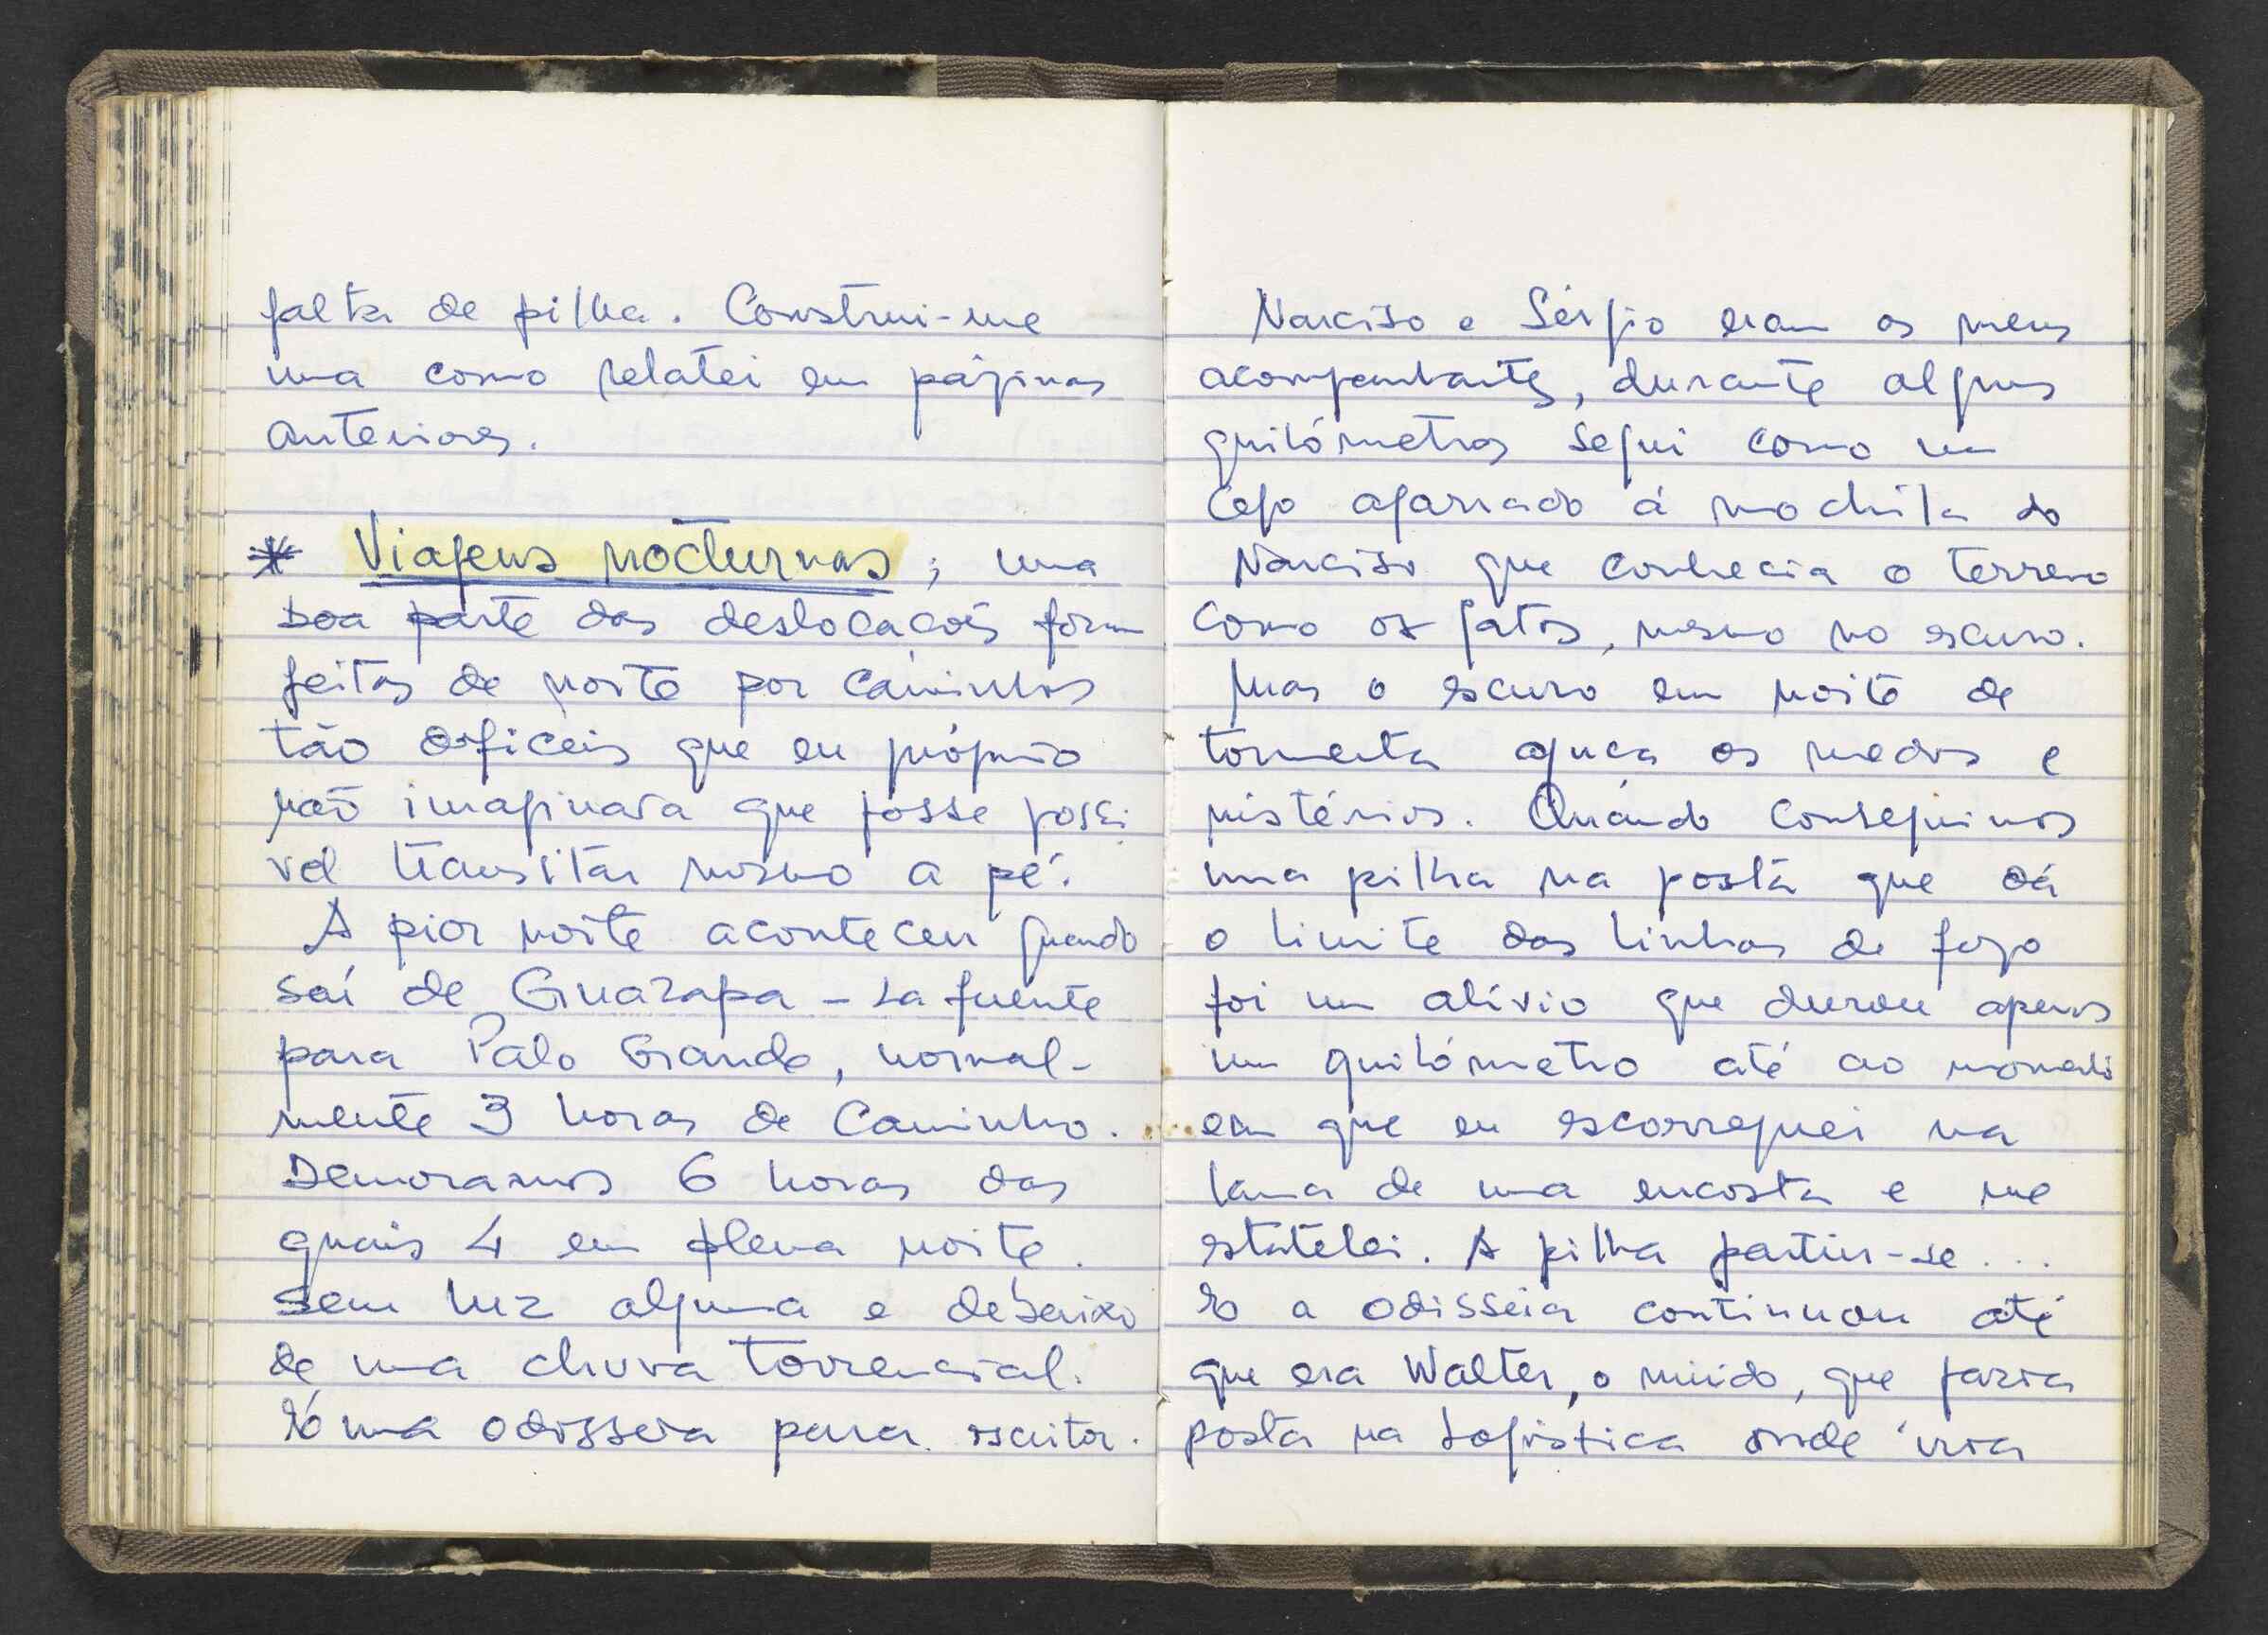 falta de pilha. Construi-me
uma como relatei em páginas
anteriores.
* Viagens nocturnas ; uma
boa parte das deslocações foram
feitas de noite por caminhos
tão dificeis que eu próprio
não imaginara que fosse possi
vel transitar mesmo a pé.
A pior noite aconteceu quando
saí de Guazapa - La fuente
para Palo Grande, normal-
mente 3 horas de caminho.
Demoramos 6 horas das
quais 4 em plena noite.
sem luz alguma e debaixo
de uma chuva torrencial.
É uma odisseia para escritor.
Narciso e Sérgio eram os meus
acompanhantes, durante alguns
quilómetros segui como um
cego agarrado á mochila do
Narciso que conhecia o terreno
como os gatos, mesmo no escuro.
Mas o escuro em noite de
tormenta aguça os medos e
mistérios. Quando conseguimos
uma pilha na posta que dá
o limite das linhas de fogo
foi um alívio que durou apenas
um quilómetro até ao momento
em que eu escorreguei na
lama de uma encosta e me
estatelei. A pilha partiu-se...
E a odisseia continuou até
que era Walter, o miúdo, que fazia
posta na Logistica onde